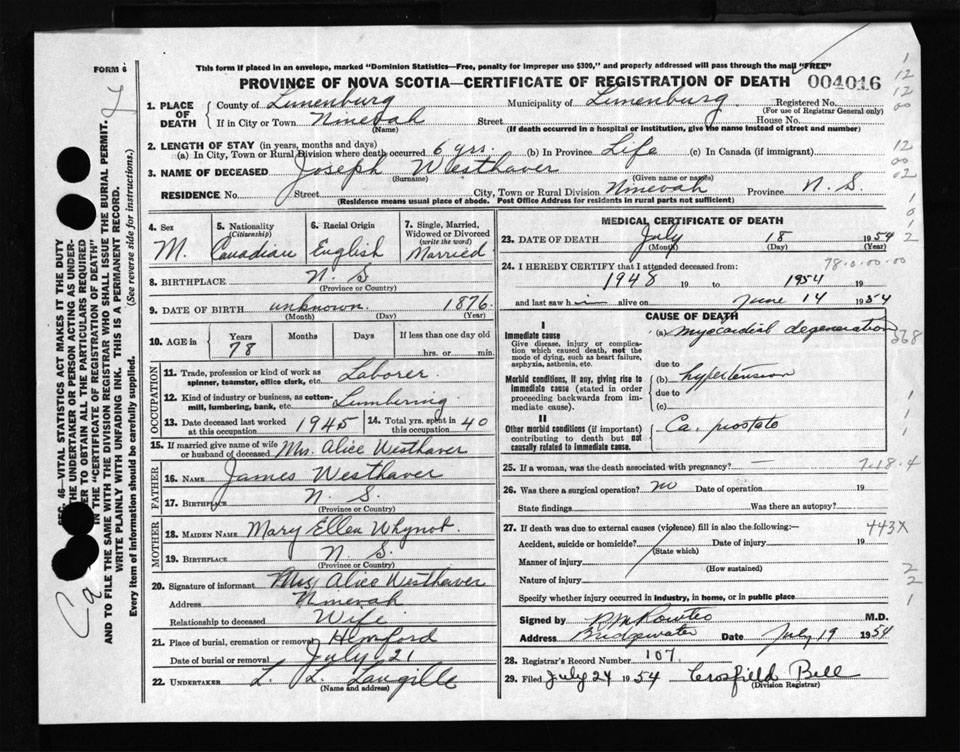 FORM 6
This form if placed in an envelope, marked "Dominion Statistics—Free, penalty for improper use $300," and properly addressed will pass through the mail "FREE"
PROVINCE OF NOVA SCOTIA—CERTIFICATE OF REGISTRATION OF DEATH 004016
1. PLACE OF DEATH
County of Lunenburg Municipality of Lunenburg Registered No.
(For use of Registrar General only)
If in City or Town Ninevah Street House No.
(Name) (If death occurred in a hospital or institution, give the name instead of street and number)
2. LENGTH OF STAY (in years, months and days)
(a) In City, Town or Rural Division where death occurred 6 yrs. (b) In Province Life (c) In Canada (if immigrant)
3. NAME OF DECEASED Joseph Westhaver
(Surname) (Given name or names)
RESIDENCE No. Street City, Town or Rural Division Ninevah Province N. S.
(Residence means usual place of abode. Post Office Address for residents in rural parts not sufficient)
4. Sex M.
5. Nationality (Citizenship) Canadian
6. Racial Origin English
7. Single, Married, Widowed or Divorced (write the word) Married
8. BIRTHPLACE N. S
(Province or Country)
9. DATE OF BIRTH unknown 1876
(Month) (Day) (Year)
10. AGE in Years 78 Months Days If less than one day old
hrs. or min.
OCCUPATION
11. Trade, profession or kind of work as spinner, teamster, office clerk, etc. Laborer
12. Kind of industry or business, as cotton-mill, lumbering, bank, etc. Lumbering
13. Date deceased last worked at this occupation 1945
14. Total yrs. spent in this occupation 40
15. If married give name of wife or husband of deceased Mrs. Alice Westhaver
FATHER
16. NAME James Westhaver
17. BIRTHPLACE N. S.
(Province or Country)
MOTHER
18. MAIDEN NAME Mary Ellen Whynot
19. BIRTHPLACE N S
(Province or Country)
20. Signature of informant Mrs Alice Westhaver
Address Ninevah
Relationship to deceased Wife
21. Place of burial, cremation or removal Hemford
Date of burial or removal July 21
22. UNDERTAKER L. L. Langille
(Name and address)
MEDICAL CERTIFICATE OF DEATH
23. DATE OF DEATH July 18 1954
(Month) (Day) (Year)
78-0-00-00
24. I HEREBY CERTIFY that I attended deceased from:
1948 19 to 1954 19
and last saw him alive on June 14 1954
CAUSE OF DEATH
I
Immediate cause (a) myocardial degeneration
Give disease, injury or complication which caused death, not the mode of dying, such as heart failure, asphyxia, asthenia, etc.
due to
Morbid conditions, if any, giving rise to immediate cause (stated in order proceeding backwards from immediate cause). (b) hypertension
due to
(c)
II
Other morbid conditions (if important) contributing to death but not causally related to immediate cause. Ca. prostate
25. If a woman, was the death associated with pregnancy? —
7.18.4
26. Was there a surgical operation? no Date of operation 19
State findings Was there an autopsy?
27. If death was due to external causes (violence) fill in also the following:—
443X
Accident, suicide or homicide? Date of injury 19
(State which)
Manner of injury
(How sustained)
Nature of injury
Specify whether injury occurred in industry, in home, or in public place
Signed by M.D.
Address Bridgewater Date July 19 1954
28. Registrar's Record Number 107
29. Filed July 24 1954 Crosfield Bell
(Division Registrar)
SEC. 46—VITAL STATISTICS ACT MAKES IT THE DUTY
THE UNDERTAKER OR PERSON ACTING AS UNDER-
ER TO OBTAIN ALL THE PARTICULARS REQUIRED
IN THE "CERTIFICATE OF REGISTRATION OF DEATH"
AND TO FILE THE SAME WITH THE DIVISION REGISTRAR WHO SHALL ISSUE THE BURIAL PERMIT.
WRITE PLAINLY WITH UNFADING INK. THIS IS A PERMANENT RECORD.
Every item of information should be carefully supplied. (See reverse side for instructions.)
Ca